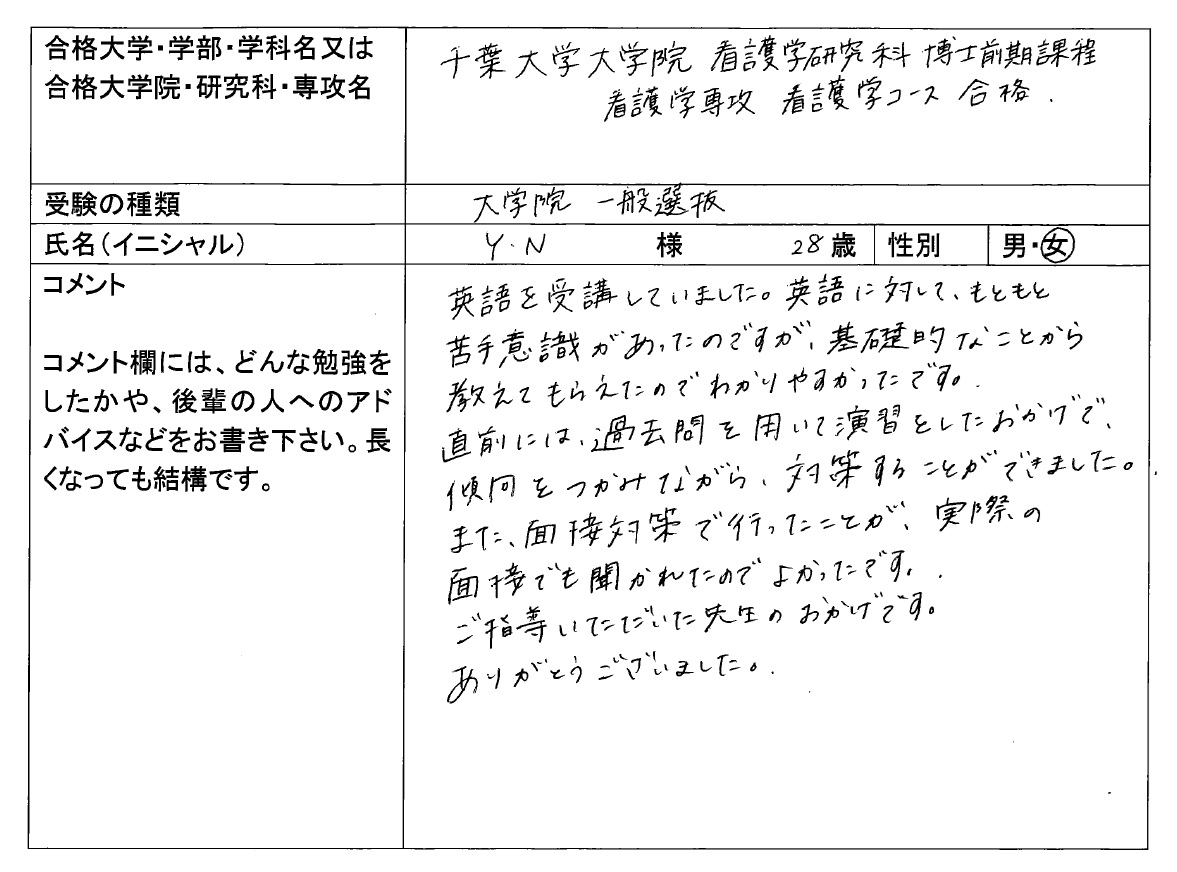 合格大学・学部・学科名又は
合格大学院・研究科・専攻名
千葉大学大学院 看護学研究科 博士前期課程
看護学専攻 看護学コース 合格.
受験の種類
大学院 一般選抜
氏名(イニシャル)
Y・N 様 28歳 性別 男・女
コメント
コメント欄には、どんな勉強を
したかや、後輩の人へのアド
バイスなどをお書き下さい。長
くなっても結構です。
英語を受講していました。英語に対して、もともと
苦手意識があったのですが、基礎的なことから
教えてもらえたのでわかりやすかったです。
直前には、過去問を用いて演習をしたおかげで、
傾向をつかみながら、対策することができました。
また、面接対策で行ったことが、実際の
面接でも聞かれたのでよかったです。
ご指導いただいた先生のおかげです。
ありがとうございました。